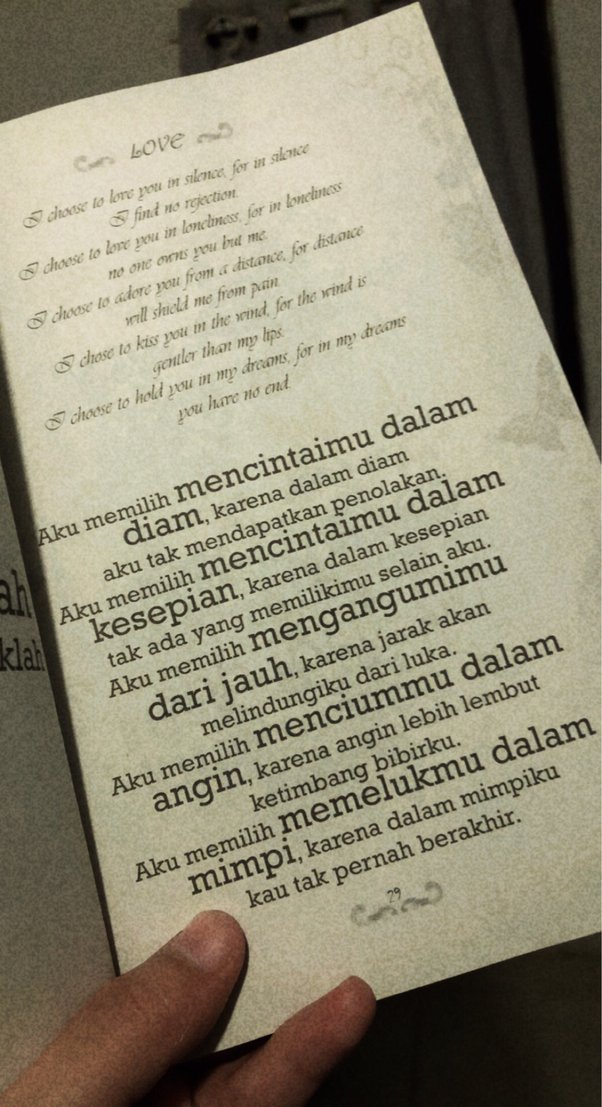 LOVE
I choose to love you in silence, for in silence
I find no rejection.
I choose to love you in loneliness, for in loneliness
no one owns you but me.
I choose to adore you from a distance, for distance
will shield me from pain.
I chose to kiss you in the wind, for the wind is
gentler than my lips.
I choose to hold you in my dreams, for in my dreams
you have no end.
Aku memilih mencintaimu dalam
diam, karena dalam diam
aku tak mendapatkan penolakan.
Aku memilih mencintaimu dalam
kesepian, karena dalam kesepian
tak ada yang memilikimu selain aku.
Aku memilih mengangumimu
dari jauh, karena jarak akan
melindungiku dari luka.
Aku memilih menciummu dalam
angin, karena angin lebih lembut
ketimbang bibirku.
Aku memilih memelukmu dalam
mimpi, karena dalam mimpiku
kau tak pernah berakhir.
29
ah
klah